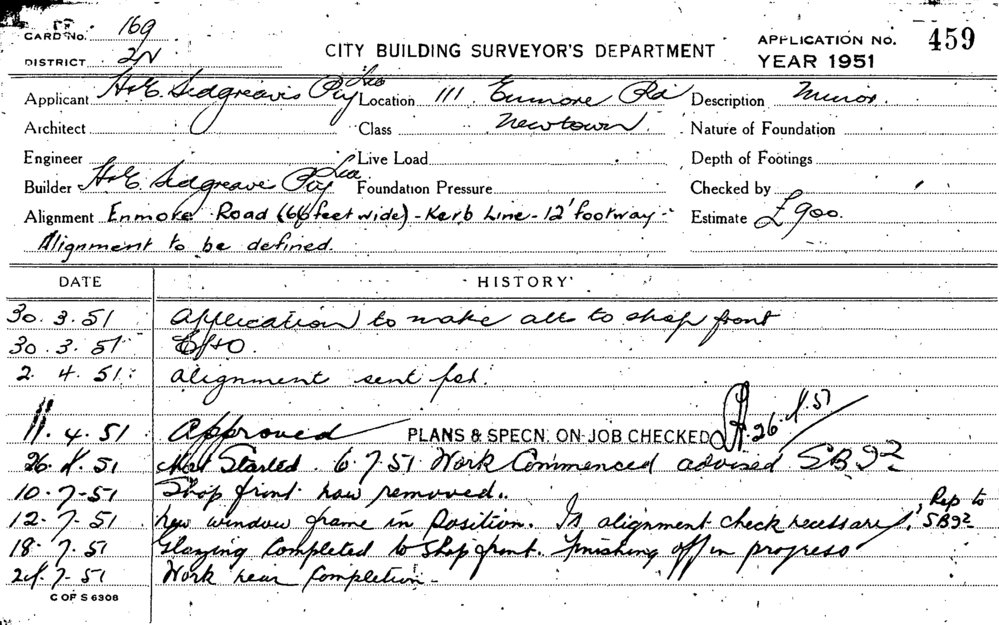 CARD No. 169
CITY BUILDING SURVEYOR'S DEPARTMENT
APPLICATION No. 459
DISTRICT 2N
YEAR 1951
Applicant H & E. Sidgreaves Pty Ltd Location 111 Enmore Rd Description Minor
Architect Class Newtown Nature of Foundation
Engineer Live Load Depth of Footings
Builder H & E. Sidgreaves Pty Ltd Foundation Pressure Checked by
Alignment Enmore Road (66 feet wide) - Kerb Line - 12' footway - Estimate £900.
Alignment to be defined.
DATE HISTORY
30.3.51 Application to make alts to shop front
30.3.51
2.4.51 Alignment sent for.
11.4.51 Approved PLANS & SPECN. ON JOB CHECKED 26.4.51
26.4.51 Not Started. 6.7.51 Work Commenced advised SB92
10-7-51 Shop front now removed.
12-7-51 New window frame in position. Is alignment check necessary? Rep to SB92
18-7-51 Glazing Completed to Shop front. Finishing off in progress
24-7-51 Work near Completion -
C OF S 6308